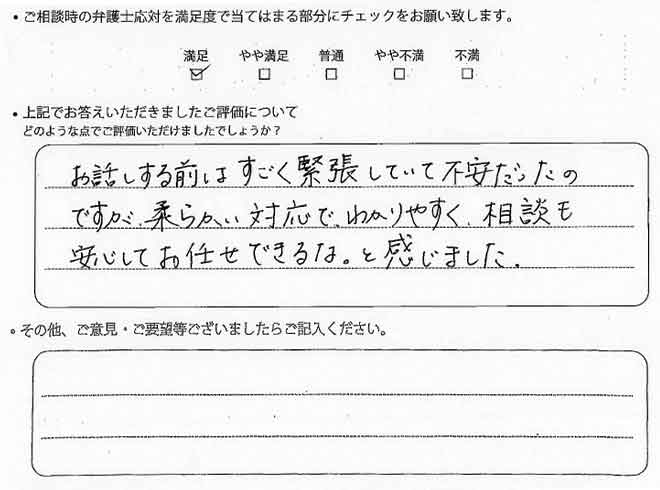 ・ご相談時の弁護士応対を満足度で当てはまる部分にチェックをお願い致します。
満足 やや満足 普通 やや不満 不満
・上記でお答えいただきましたご評価について
どのような点でご評価いただけましたでしょうか?
お話しする前はすごく緊張していて不安だったの
ですが、柔らかい対応で、わかりやすく、相談も
安心してお任せできるな。と感じました。
・その他、ご意見・ご要望等ございましたらご記入ください。